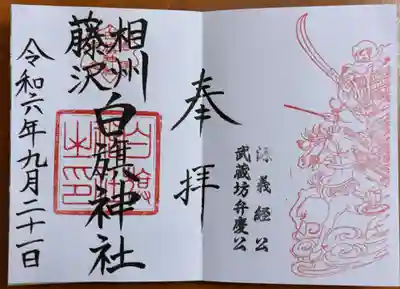 奉拝
源義經公
武蔵坊弁慶公
相州
藤沢
白旗神社
令和六年九月二十一日